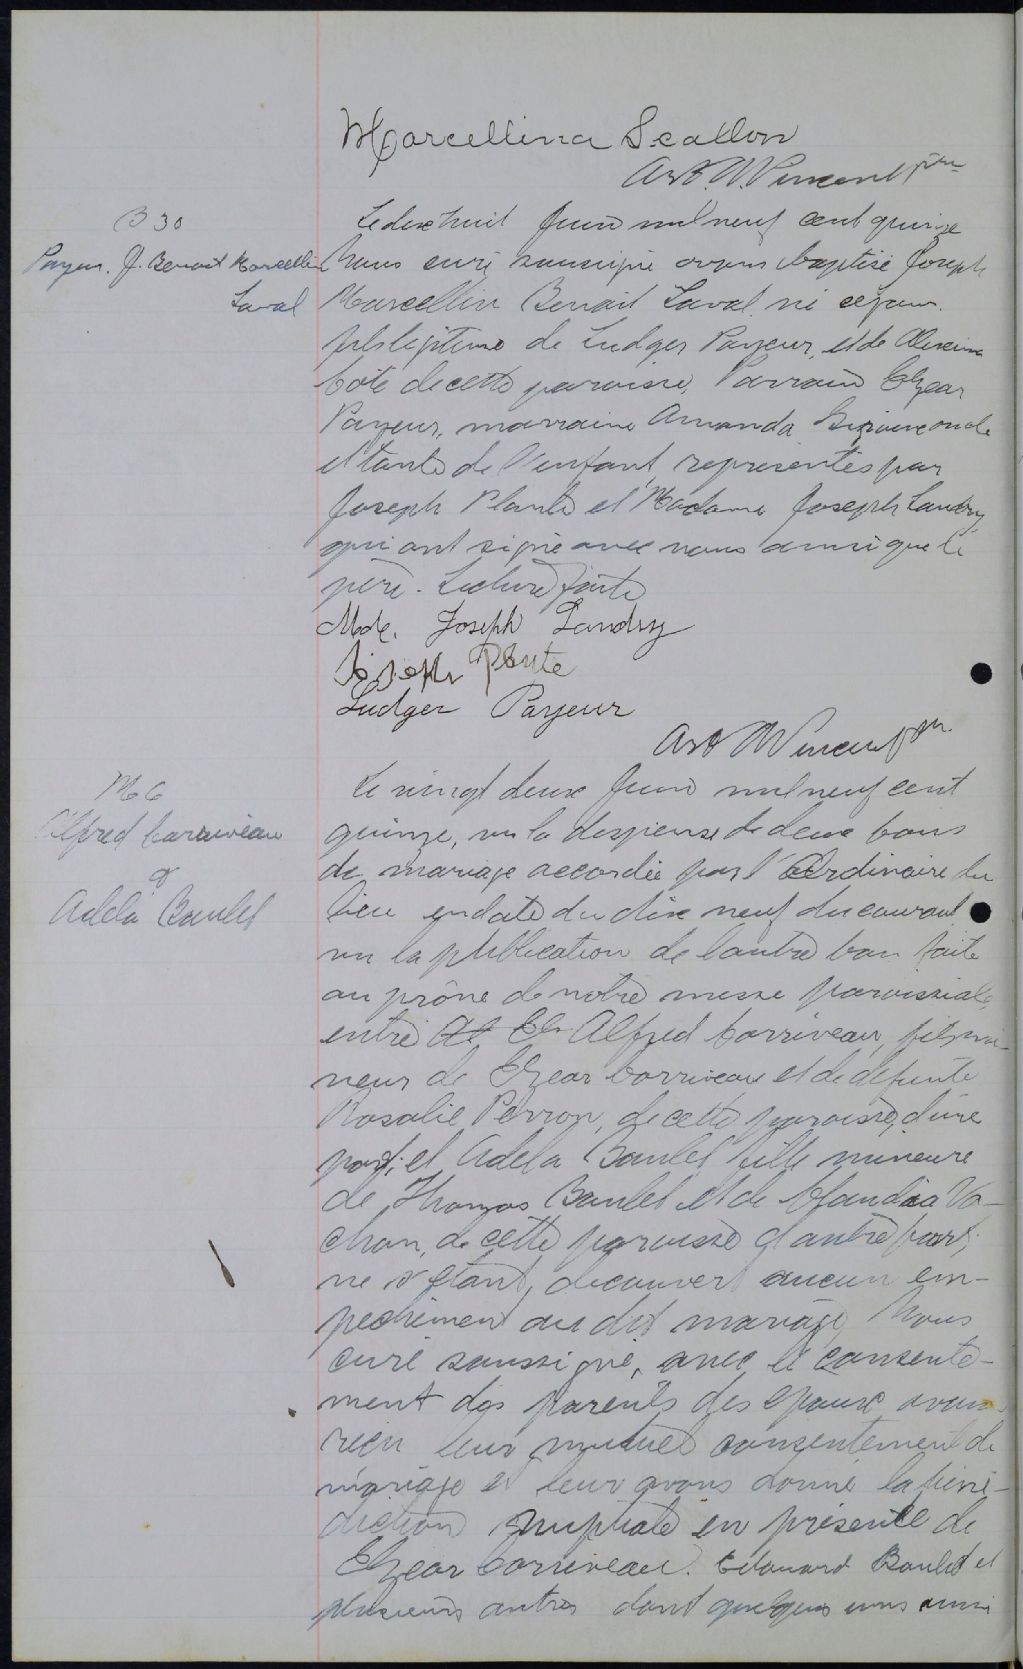 Marcellina Scallon
Art. W. Vincent ptre
B 30
Payeur. J. Benoit Marcellin
Laval
Le dix huit Juin mil neuf cent quinze
Nous curé soussigné avons baptisé Joseph
Marcellin Benoit Laval né ce jour
fils légitime de Ludger Payeur, et de Alexina
Coté de cette paroisse, Parrain Elzear
Payeur, marraine Amanda oncle
et tante de l'enfant, representés par
Joseph Plante et Madame Joseph Landry
qui ont signé avec nous ainsi que le
père. Lecture faite
Mde. Joseph Landry
Joseph Plante
Ludger Payeur
Art W Vincent ptre
M 6
Alfred Corriveau
&
Adela Baulet
Le vingt deux Juin mil neuf cent
quinze, vu la dispense de deux bans
de mariage accordée par l'Ordinaire du
lieu en date du dix neuf du courant
vu la publication de l'autre ban faite
au prône de notre messe paroissiale
entre Alfred Corriveau, fils mi-
neur de Elzear Corriveau et de defunte
Rosalie Perron, de cette paroisse, d'une
part, et Adela Baulet fille mineure
de Thomas Baulet et de Claudia Va-
chon, de cette paroisse d'autre part;
ne s'étant decouvert aucun em-
pechement au dit mariage Nous
curé soussigné, avec le consente-
ment des parents des epoux avons
reçu leur mutuel consentement de
mariage et leur avons donné la béné-
diction nuptiale en présence de
Elzear Corriveau. Edouard Baulet et
plusieurs autres dont quelques uns ainsi